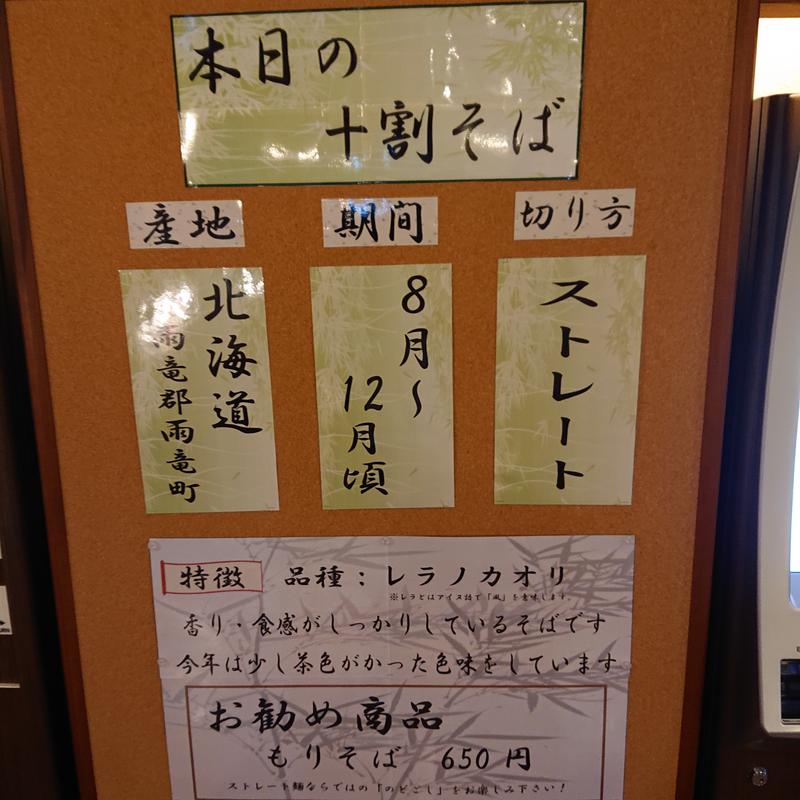 本日の
十割そば
産地
北海道
雨竜郡雨竜町
期間
8月〜
12月頃
切り方
ストレート
特徴 品種：レラノカオリ
※レラとはアイヌ語で「風」を意味します。
香り・食感がしっかりしているそばです
今年は少し茶色がかった色味をしています
お勧め商品
もりそば 650円
ストレート麺ならではの「のどごし」をお楽しみ下さい！